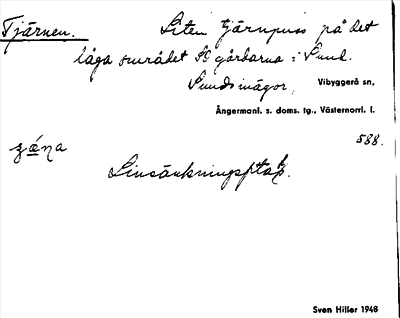 Tjärnen. Liten tjärnpuss på det
låga området SO gårdarna i Sund.
Sundsinägor, Vibyggerå sn,
Ångermanl. s. doms. tg., Västernorrl. l.
588.
Linsänkningsplats.
Sven Hiller 1948